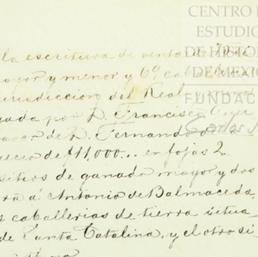 CENTRO
ESTUDIO
DE HISTOR
DE MEXIC
FUNDAC
la escritura de venta de
mayor y menor y 6 caballe
jurisdiccion del Real
gada por D. Francisco
de D. Fernando
precio de $11,000... en fojas 2
sitios de ganado mayor y dos
á Antonio de Balmaceda
caballerias de tierra situa
de Santa Catalina, y el otro si